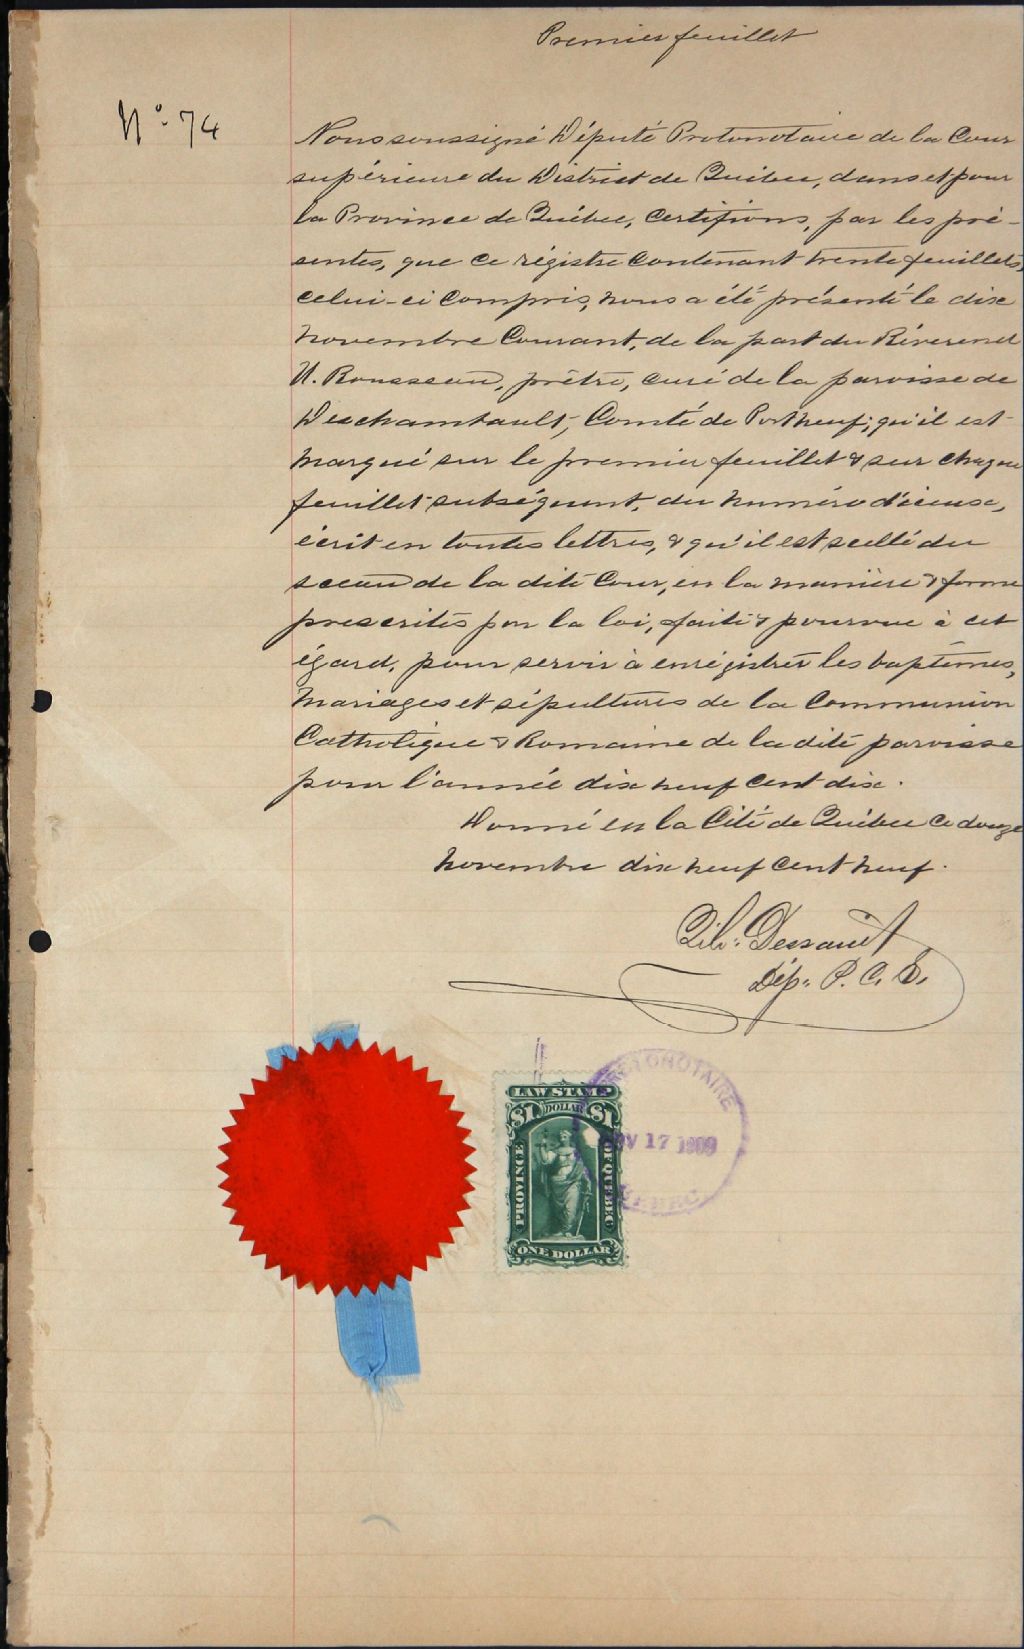 Premier feuillet
No. 74
Nous soussigné Député Protonotaire de la Cour
supérieure du District de Québec, dans et pour
la Province de Québec, Certifions, par les pré-
sentes, que ce régistre contenant trente feuillets,
celui-ci compris, nous a été présenté le dix
novembre Courant, de la part du Révérend
U. Rousseau, prêtre, curé de la paroisse de
Deschambault, Comté de Portneuf; qu'il est
marqué sur le premier feuillet & sur chaque
feuillet subséquent, du numéro d'icieux,
écrit en toutes lettres, & qu'il est scellé du
sceau de la dite Cour, en la manière & forme
prescrites par la loi, faite & pourvue à cet
égard, pour servir à enrégistrer les baptêmes,
mariages et sépultures de la Communion
Catholique & Romaine de la dite paroisse
pour l'année dix neuf cent dix.
Donné en la Cité de Québec ce douze
novembre dix neuf cent neuf.
Dép. P. C. S.
LAW STAMP
$1 DOLLAR $1
PROVINCE OF QUEBEC
ONE DOLLAR
PROTONOTAIRE
NOV 17 1909
QUEBEC